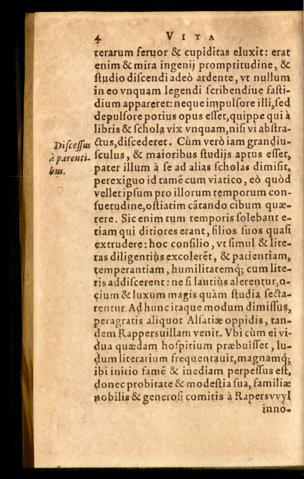 4 VITA
terarum feruor & cupiditas eluxit: erat
enim & mira ingenij promptitudine, &
studio discendi adeò ardente, vt nullum
in eo vnquam legendi scribendíue fasti-
dium appareret: neque impulsore illi, sed
depulsore potius opus esset, quippe qui à
libris & schola vix vnquam, nisi vi abstra-
ctus, discederet. Cùm verò iam grandiu-
Discessus
à parenti-
bus.
sculus, & maioribus studijs aptus esset,
pater illum à se ad alias scholas dimisit,
perexiguo id tamē cum viatico, eò quòd
vellet ipsum pro illorum temporum con-
suetudine, ostiatim cātando cibum quæ-
rere. Sic enim tum temporis solebant e-
tiam qui ditiores erant, filios suos quasi
extrudere: hoc consilio, vt simul & lite-
ras diligentiùs excolerēt, & patientiam,
temperantiam, humilitatemq; cum lite-
ris addiscerent: ne si lautiùs alerentur, o-
cium & luxum magis quàm studia secta-
rentur. Ad hunc itaque modum dimissus,
peragratis aliquot Alsatiæ oppidis, tan-
dem Rappersuillam venit. Vbi cùm ei vi-
dua quædam hospitium præbuisset, lu-
dum literarium frequentauit, magnamq;
ibi initio famē & inediam perpessus est,
donec probitate & modestia sua, familiæ
nobilis & generosi comitis à Rapersvvyl
inno-